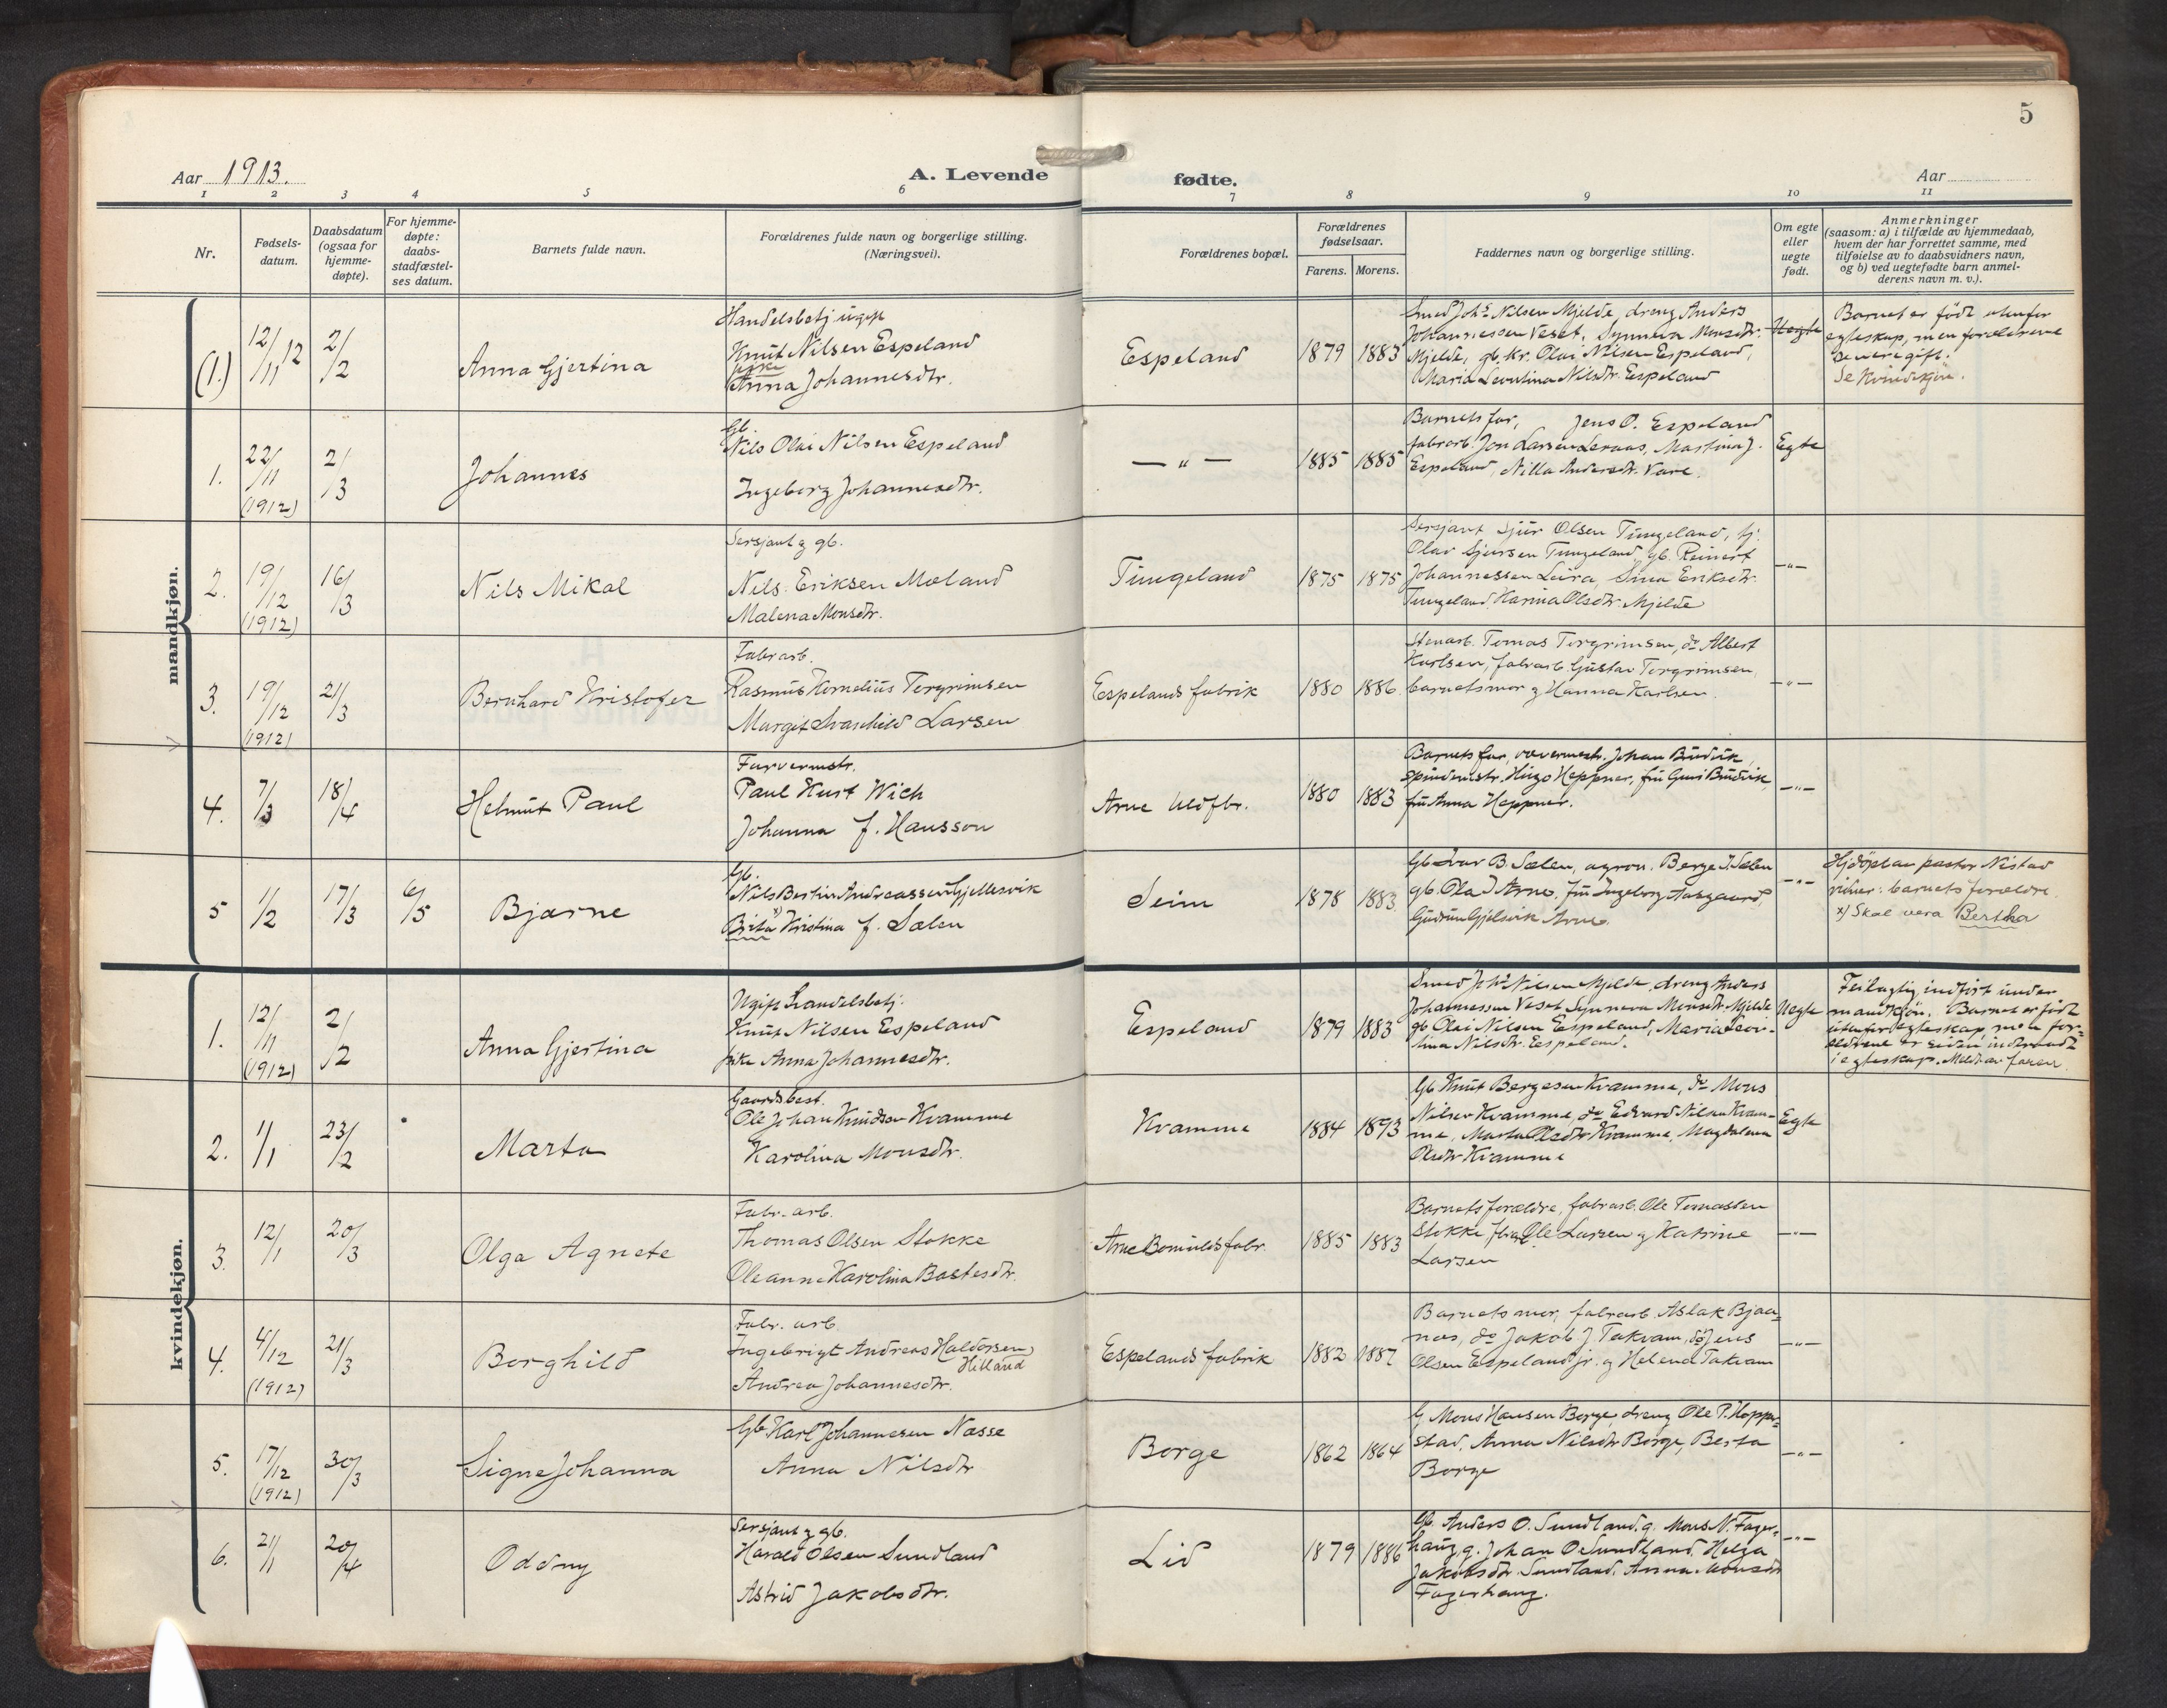 5
Aar 1913.
A. Levende
fødte.
Aar
1 2 3 4 5 6 7 8 9 10 11
Nr.
Fødsels-
datum.
Daabsdatum
(ogsaa for
hjemme-
døpte).
For hjemme-
døpte:
daabs-
stadfæstel-
ses datum.
Barnets fulde navn.
Forældrenes fulde navn og borgerlige stilling.
(Næringsvei).
Forældrenes bopæl.
Forældrenes
fødselsaar.
Farens. Morens.
Faddernes navn og borgerlige stilling.
Om egte
eller
uegte
født.
Anmerkninger
(saasom: a) i tilfælde av hjemmedaab,
hvem der har forrettet samme, med
tilføielse av to daabsvidners navn,
og b) ved uegtefødte barn anmel-
derens navn m. v.).
mandkjøn.
(1.)
12/11 12
2/2
Anna Gjertina
Handelsbetj. ugift
Knut Nilsen Espeland
pike
Anna Johannesdtr.
Espeland
1879 1883
Smed Johs Nilsen Mjelde, dreng Anders
Johannessen Veset, Synneva Monsdtr.
Mjelde, gb. Kr. Olai Nilsen Espeland,
Maria Leontina Nilsdtr. Espeland
Uegte
Barnet er född utenfor
egteskap, men forældrene
senere gift.
Se Kvindekjön.
1.
22/11
(1912)
2/3
Johannes
Gb.
Nils Olai Nilsen Espeland
Ingeborg Johannesdtr.
— " —
1885 1885
Barnets far, Jens O. Espeland
fabrarb. Jon Larsen Leraas, Martina J.
Espeland, Nilla Andersdtr. Vare.
Egte
2.
19/12
(1912)
16/3
Nils Mikal
Sersjant og gb.
Nils Eriksen Mæland
Malena Monsdtr.
Tungeland
1875 1875
Sersjant Sjur Olsen Tungeland, tj.
Olav Sjursen Tungeland, gb. Reinert
Johannessen Leira, Sina Eriksdtr.
Tungeland, Karina Olsdtr. Mjelde
— " —
3.
19/12
(1912)
21/3
Bernhard Kristofer
Fabrarb.
Rasmus Kornelius Torgrimsen
Margit Svanhild Larsen
Espelands fabrik
1880 1886
Stenarb. Tomas Torgrimsen, do Albert
Karlsen, fabrarb. Gustav Torgrimsen,
barnets mor og Hanna Karlsen.
— " —
4.
7/3
18/4
Helmut Paul
Farvermstr.
Paul Kurt Wich
Johanna f. Hansson
Arne Uldfbr.
1880 1883
Barnets far, vævermestr. Johan Budvik,
spindemstr. Hugo Heppner, fru Guri Budvik,
fru Anna Heppner.
— " —
5
1/2
17/3
6/5
Bjarne
Gb.
Nils Bertin Andreassen Gjellesvik
Birta x) Kristina f. Sælen
Seim
1878 1883
Gb. Ivar B. Sælen, agron. Berge J. Sælen
gb. Ola J. Arne, fru Ingeborg Aasgaard,
Gudrun Gjelsvik Arne.
— " —
Hjdöpt av pastor Nistad
vidner: barnets forældre
x) Skal vera Bertha
kvindekjøn.
1.
12/11
(1912)
2/2
Anna Gjertina
Ugift Handelsbetj.
Knut Nilsen Espeland
pike Anna Johannesdtr.
Espeland
1879 1883
Smed Johs Nilsen Mjelde, dreng Anders
Johannessen Veset, Synneva Monsdtr. Mjelde
gb. Olai Nilsen Espeland, Maria Leon-
tina Nilsdtr. Espeland.
Uegte
Feilagtig indfört under
mandkjön. Barnet er född
utenfor egteskap, men for-
ældrene er siden indtraadt
i egteskap. Meldt av faren.
2.
1/1
23/2
Marta
Gaardsbest.
Ole Johan Knudsen Kvamme
Karolina Monsdtr.
Kvamme
1884 1893
Gb. Knut Bergesen Kvamme, do Mons
Nilsen Kvamme, do Edvard Nilsen Kvam-
me, Marta Olsdtr. Kvamme, Magdalena
Olsdtr. Kvamme
Egte
3.
12/1
20/3
Olga Agnete
Fabr. arb.
Thomas Olsen Stokke
Oleanna Karolina Bastesdtr.
Arne Bomuldsfabr.
1885 1883
Barnets forældre, fabrarb. Ole Tomassen
Stokke, Ole Larsen og Katrine
Larsen
— " —
4.
4/12
(1912)
21/3
Borghild
Fabr. arb.
Ingebrigt Andreas Haldorsen
Hilland
Andrea Johannesdtr.
Espelands fabrik
1882 1887
Barnets mor, fabrarb. Aslak Bjaa-
nes, do Jakob J. Takvam, do Jens
Olsen Espeland jr. og Helena Takvam
— " —
5.
17/12
(1912)
30/3
Signe Johanna
Gb Karl Johannesen Næsse
Anna Nilsdtr
Borge
1862 1864
G. Mons Hansen Borge, dreng Ole P. Hoppe-
stad, Anna Nilsdtr Borge, Berta
Borge
— " —
6.
21/1
20/4
Oddny
Sersjant og gb.
Harald Olsen Sundland
Astrid Jakobsdtr.
Lid
1879 1886
Gb. Anders O. Sundland, g. Mons N. Fager-
haug, g. Johan O. Sundland, Helga
Jakobsdtr. Sundland, Anna Monsdtr
Fagerhaug.
— " —